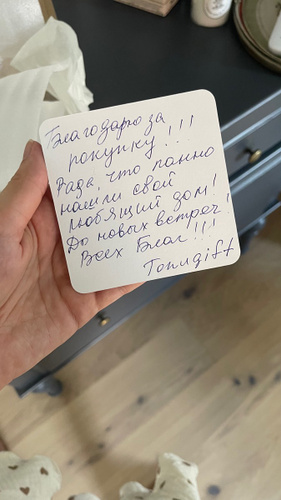 Благодарю за
покупку!!!
Рада, что панно
нашли свой
любящий дом!
До новых встреч!
Всех Благ!!!
Tonugift